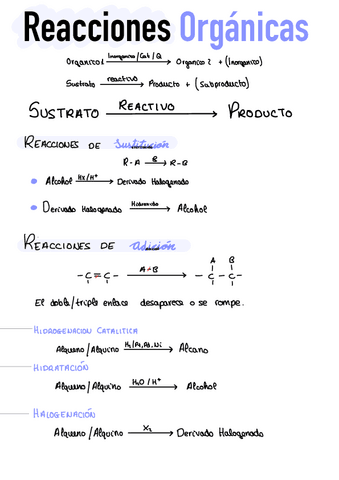 Reacciones Orgánicas
Orgánico 1 Inorgánico/Cat/Q → Orgánico 2 + (Inorgánico)
Sustrato reactivo → Producto + (Subproducto)
SUSTRATO REACTIVO → PRODUCTO
REACCIONES DE Sustitución
R-A B → R-B
• Alcohol HX/H⁺ → Derivado Halogenado
• Derivado Halogenado → Alcohol
REACCIONES DE Adición
A B
-C=C- A-B → -C-C-
El doble/triple enlace desaparece o se rompe.
HIDROGENACION CATALITICA
Alqueno/Alquino H₂/Pt, Pd, Ni → Alcano
HIDRATACIÓN
Alqueno/Alquino H₂O/H⁺ → Alcohol
HALOGENACIÓN
Alqueno/Alquino X₂ → Derivado Halogenado